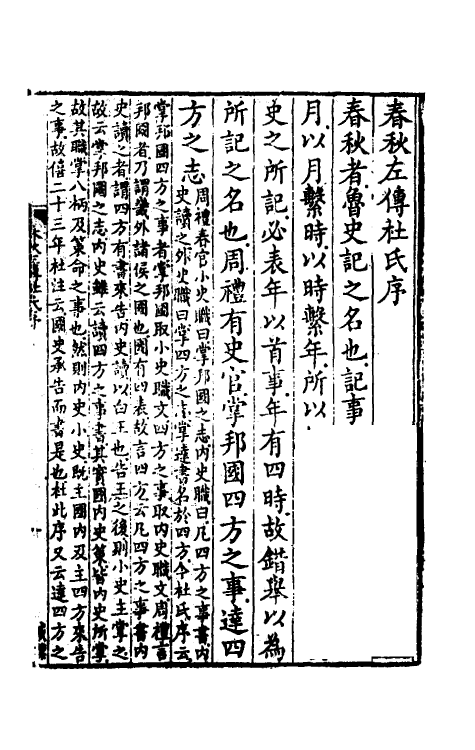 春秋左傳杜氏序
春秋者魯史記之名也記事
月以月繫時以時繫年所以
史之所記必表年以首事年有四時故錯舉以為
所記之名也周禮有史官掌邦國四方之事達四
方之志
周禮春官小史職曰掌邦國之志内史職曰凡四方之事書内
史讀之外史職曰掌四方之志掌達書名於四方今杜氏序云
掌邦國四方之事者掌邦國取小史職文四方之事取内史職文周禮言
邦國者乃謂畿外諸侯之國也國有四表故言四方云凡四方之事書内
史讀之者謂四方有書來告内史讀以白王也告王之後則小史主掌之
故云掌邦國之志内史雖云讀四方之事書其實國内史策皆内史所掌
故其職掌八柄及策命之事也然則内史小史既主國内及主四方來告
之事故僖二十三年杜注云國史承告而書是也杜此序又云達四方之